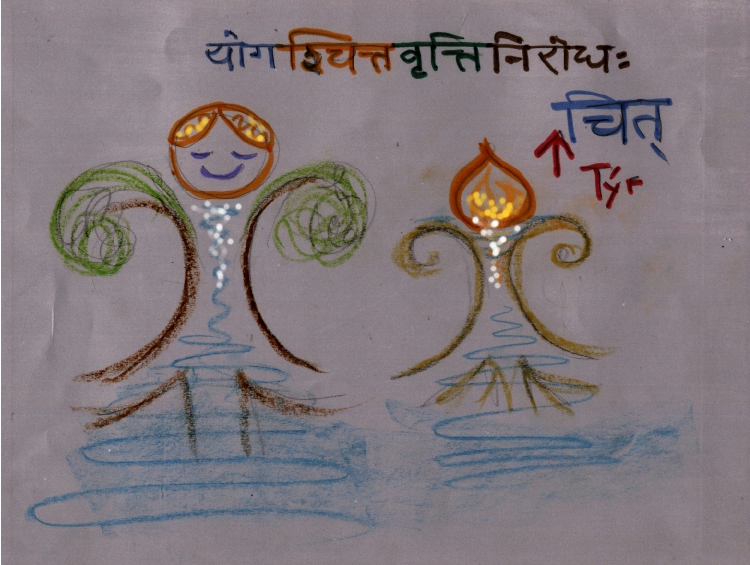 योगश्चित्तवृत्तिनिरोधः
चित्
↑ Týr